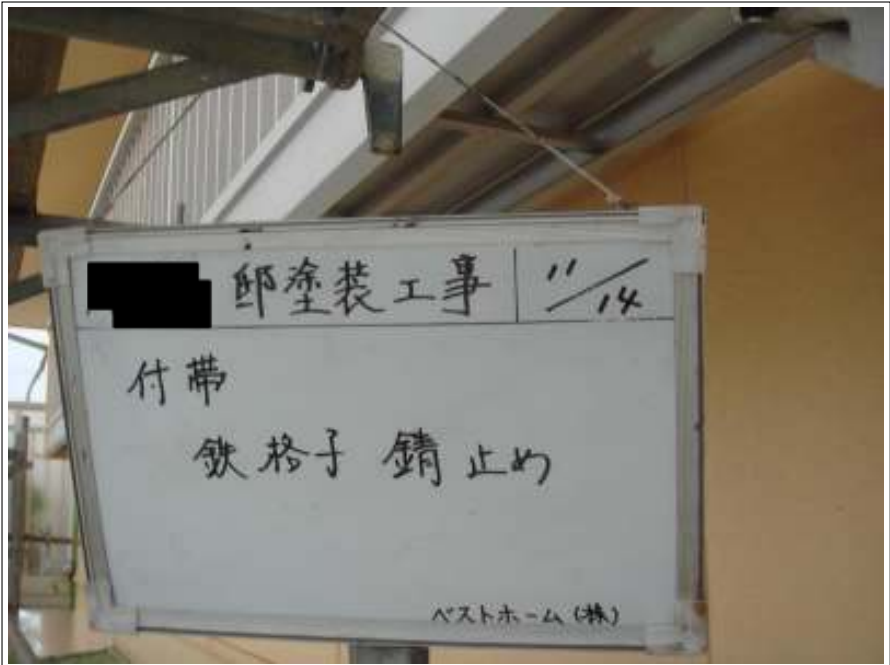 邸塗装工事 11/14
付帯
鉄格子 錆止め
ベストホーム(株)